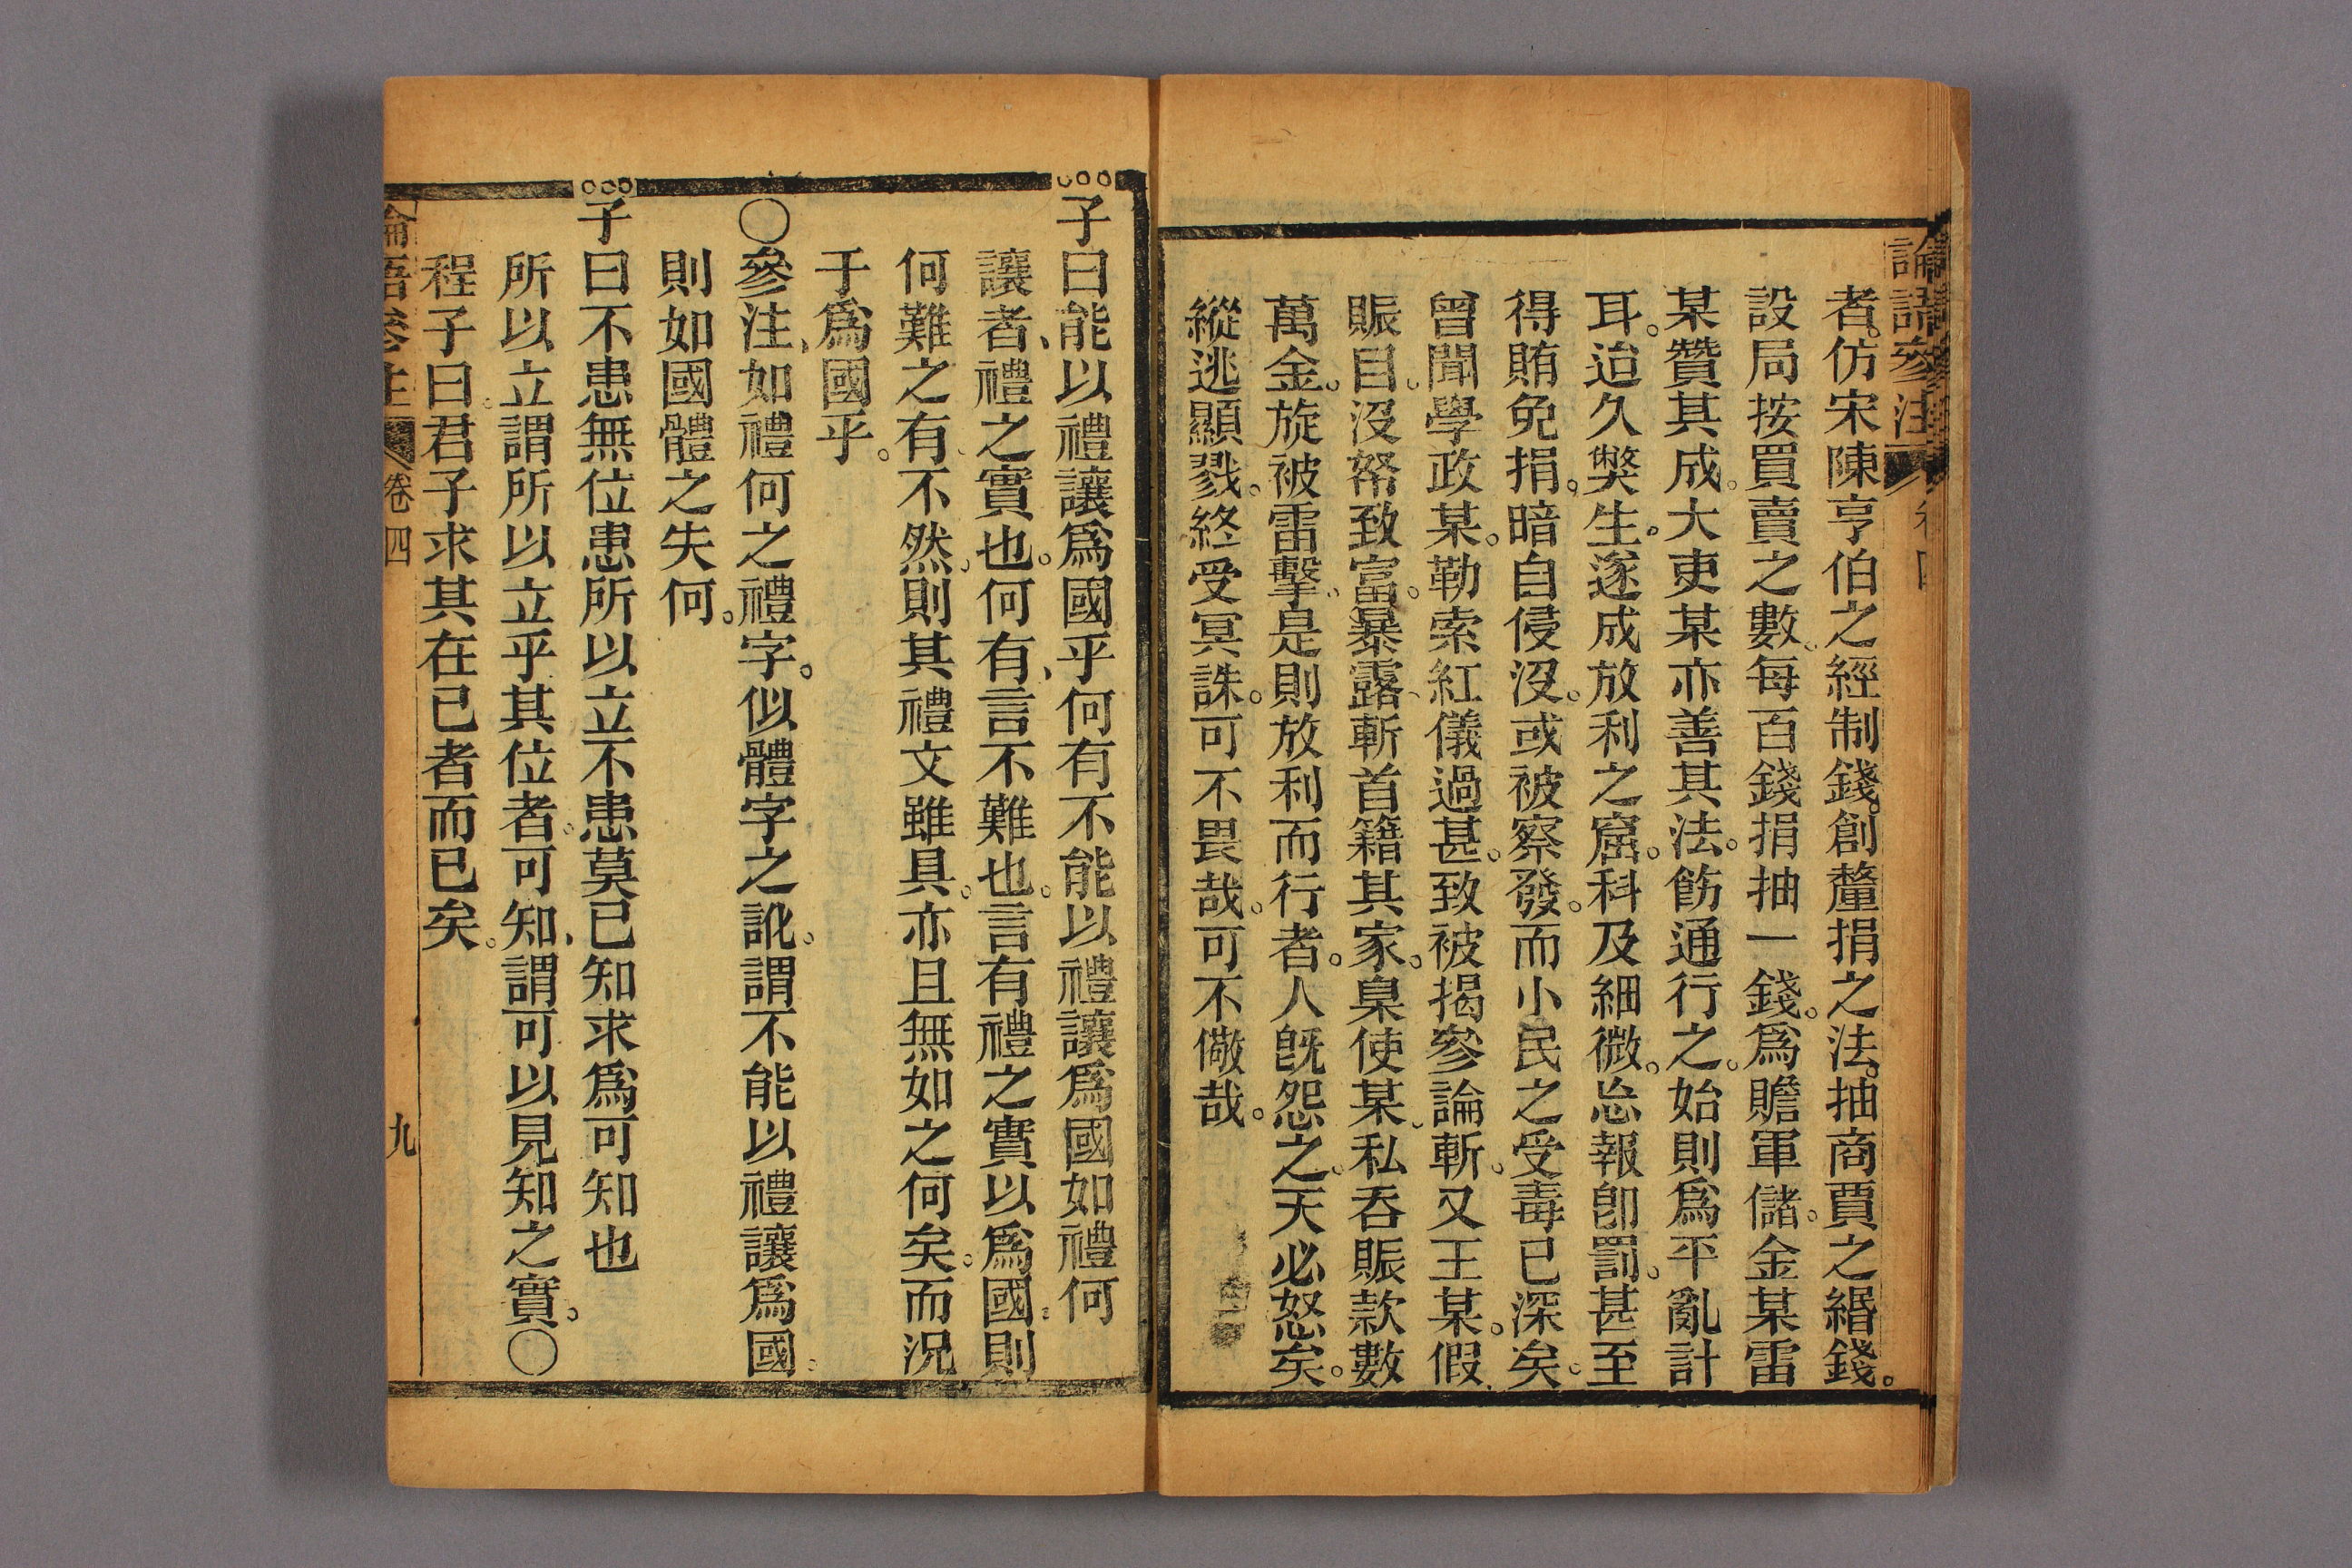 論語參注
者。仿宋陳亨伯之經制錢。創釐捐之法。抽商賈之緡錢。
設局按買賣之數。每百錢捐抽一錢。爲贍軍儲。金某雷
某贊其成。大吏某亦善其法。飭通行之。始則爲平亂計
耳。迨久獘生。遂成放利之窟。科及細微。怂報卽罰。甚至
得賄免捐。暗自侵沒。或被察發。而小民之受毒已深矣。
曾聞學政某。勒索紅儀過甚。致被揭參論斬。又王某。假
賑目。沒帑致富。暴露斬首籍其家。臬使某。私吞賑款數
萬金。旋被雷擊。是則放利而行者。人旣怨之。天必怒矣。
縱逃顯戮。終受冥誅。可不畏哉。可不儆哉。
子曰能以禮讓爲國乎何有不能以禮讓爲國如禮何
讓者、禮之實也。何有、言不難也。言有禮之實以爲國。則
何難之有、不然、則其禮文雖具。亦且無如之何矣。而況
于爲國乎。
〇參注、如禮何之禮字。似體字之訛。謂不能以禮讓爲國。
則如國體之失何。
子曰不患無位患所以立不患莫己知求爲可知也
所以立謂所以立乎其位者。可知、謂可以見知之實。〇
程子曰。君子求其在己者而已矣。
論語參注 卷四 九